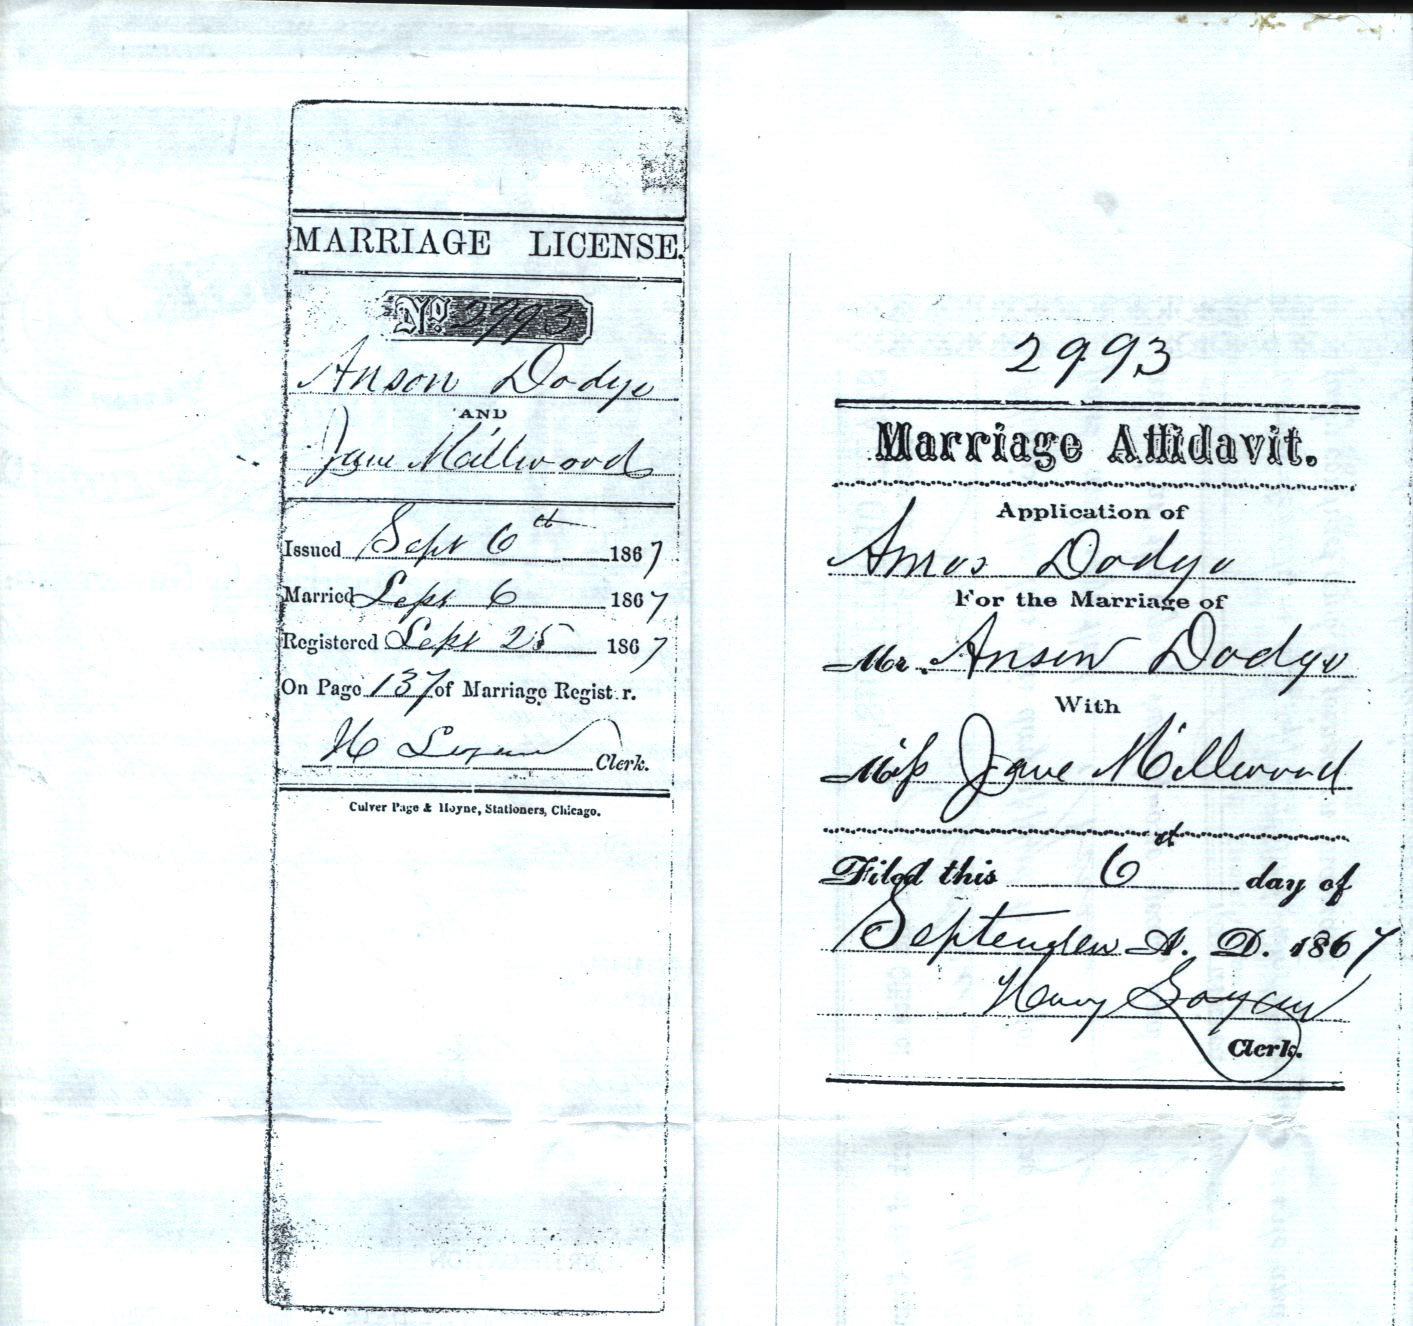 MARRIAGE LICENSE.
No. 2993
Anson Dodge
AND
Jane Millwood
Issued Sept 6th 1867
Married Sept 6 1867
Registered Sept 25 1867
On Page 137 of Marriage Regist r.
H Clerk.
Culver Page & Hoyne, Stationers, Chicago.
2993
Marriage Affidavit.
Application of
Amos Dodge
For the Marriage of
Mr. Anson Dodge
With
Miss Jane Millwood
Filed this 6th day of
September A. D. 1867
Henry
Clerk.